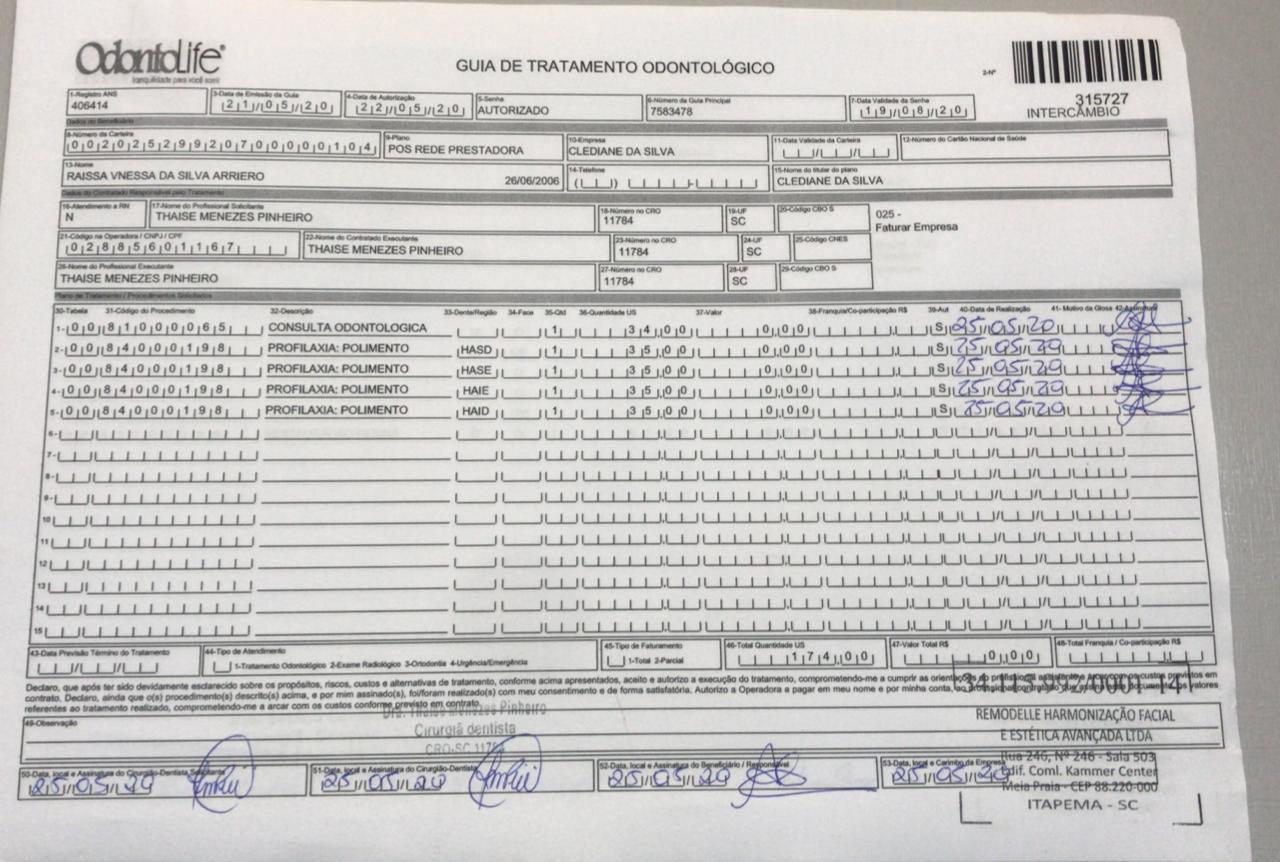 OdontoLife
tranquilidade para você sorrir
GUIA DE TRATAMENTO ODONTOLÓGICO
2-Nº
315727
INTERCÂMBIO
1-Registro ANS 3-Data de Emissão da Guia 4-Data de Autorização 5-Senha 6-Número da Guia Principal 7-Data Validade da Senha
406414 21/05/20 22/05/20 AUTORIZADO 7583478 19/08/20
Dados do Beneficiário
8-Número da Carteira 9-Plano 10-Empresa 11-Data Validade da Carteira 12-Número do Cartão Nacional de Saúde
00202529920700000104 POS REDE PRESTADORA CLEDIANE DA SILVA
13-Nome 14-Telefone 15-Nome do titular do plano
RAISSA VNESSA DA SILVA ARRIERO 26/06/2006 CLEDIANE DA SILVA
Dados do Contratado Responsável pelo Tratamento
16-Atendimento a RN 17-Nome do Profissional Solicitante 18-Número no CRO 19-UF 20-Código CBO S
N THAISE MENEZES PINHEIRO 11784 SC
025 -
Faturar Empresa
21-Código na Operadora / CNPJ / CPF 22-Nome do Contratado Executante 23-Número no CRO 24-UF 25-Código CNES
02885601167 THAISE MENEZES PINHEIRO 11784 SC
26-Nome do Profissional Executante 27-Número no CRO 28-UF 29-Código CBO S
THAISE MENEZES PINHEIRO 11784 SC
Plano de Tratamento / Procedimentos Solicitados
30-Tabela 31-Código do Procedimento 32-Descrição 33-Dente/Região 34-Face 35-Qtd 36-Quantidade US 37-Valor 38-Franquia/Co-participação R$ 39-Aut 40-Data de Realização 41- Motivo da Glosa 42-Assinatura
1- 00 81000065 CONSULTA ODONTOLOGICA 1 34,00 0,00 S 25/05/20
2- 00 84000198 PROFILAXIA: POLIMENTO HASD 1 35,00 0,00 S 25/05/20
3- 00 84000198 PROFILAXIA: POLIMENTO HASE 1 35,00 0,00 S 25/05/20
4- 00 84000198 PROFILAXIA: POLIMENTO HAIE 1 35,00 0,00 S 25/05/20
5- 00 84000198 PROFILAXIA: POLIMENTO HAID 1 35,00 0,00 S 25/05/20
6-
7-
8-
9-
10
11
12
13
14
15
43-Data Previsão Término do Tratamento 44-Tipo de Atendimento 45-Tipo de Faturamento 46-Total Quantidade US 47-Valor Total R$ 48-Total Franquia / Co-participação R$
1-Tratamento Odontológico 2-Exame Radiológico 3-Ortodontia 4-Urgência/Emergência 1-Total 2-Parcial 174,00 0,00
Declaro, que após ter sido devidamente esclarecido sobre os propósitos, riscos, custos e alternativas de tratamento, conforme acima apresentados, aceito e autorizo a execução do tratamento, comprometendo-me a cumprir as orientações do profissional assistente e arcar com os custos previstos em
contrato. Declaro, ainda que o(s) procedimento(s) descrito(s) acima, e por mim assinado(s), foi/foram realizado(s) com meu consentimento e de forma satisfatória. Autorizo a Operadora a pagar em meu nome e por minha conta, ao profissional contratado que assina esse documento, os valores
referentes ao tratamento realizado, comprometendo-me a arcar com os custos conforme previsto em contrato.
49-Observação
Dra. Thaise Menezes Pinheiro
Cirurgiã dentista
CRO-SC 11784
REMODELLE HARMONIZAÇÃO FACIAL
E ESTÉTICA AVANÇADA LTDA
Rua 246, Nº 246 - Sala 503
Edif. Coml. Kammer Center
Meia Praia - CEP 88.220-000
ITAPEMA - SC
50-Data, local e Assinatura do Cirurgião-Dentista Solicitante 51-Data, local e Assinatura do Cirurgião-Dentista 52-Data, local e Assinatura do Beneficiário / Responsável 53-Data, local e Carimbo da Empresa
25/05/20 25/05/20 25/05/20 25/05/20